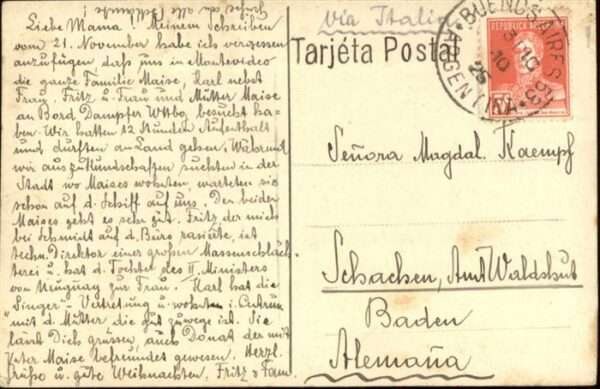 Via Italia
Tarjéta Postal
BUENOS AIRES
ARGENTINA
Señora Magdal. Kaempf
Schachen, Amt Waldshut
Baden
Alemaña
Liebe Mama! Meinem Schreiben
vom 21. November habe ich vergessen
anzufügen, daß uns in Montevideo
die ganze Familie Maise, Karl nebst
Frau, Fritz u. Frau und Mütter Maise
an Bord Dampfer Wttbg. besucht ha-
ben. Wir hatten 12 Stunden Aufenthalt
und durften an Land gehen. Während
wir auszukundschaften suchten in der
Stadt wo Maises wohnten, warteten sie
schon auf d. Schiff auf uns. Den beiden
Maises geht es sehr gut. Fritz, der mich
bei Schmidt auf d. Büro rasierte, ist
techn. Direktor einer großen Massenschläch-
terei u. hat d. Tochter des II. Ministers
von Uruguay zur Frau. Karl hat die
"Singer"-Vertretung u. wohnten i. Centrum
mit d. Mütter die gut zuwege ist. Sie
läßt Dich grüssen, auch Donat der mit
Peter Maise befreundet gewesen. Herzl.
Grüße u. gute Weihnachten. Fritz u. Fam.